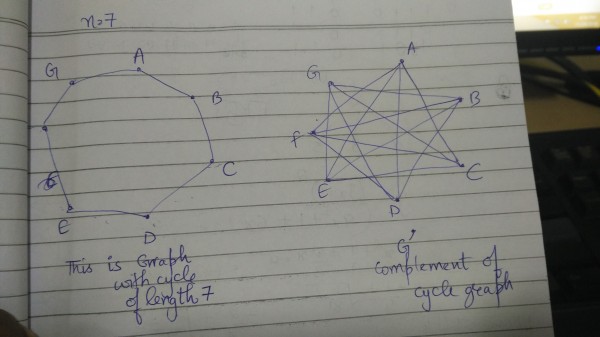 n=7
A
G
B
C
E
D
This is Graph
with cycle
of length 7
A
G
B
F
C
E
D
G'
complement of
cycle graph